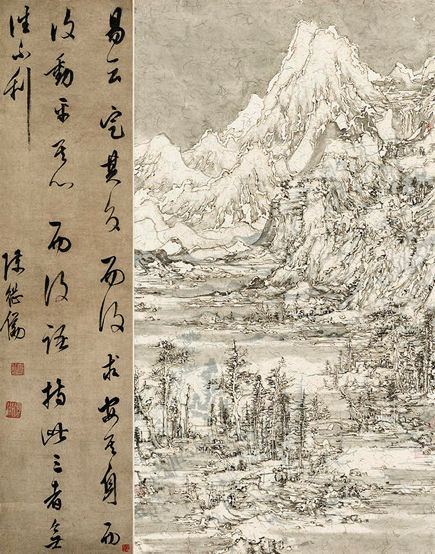 易云定其交而後求安其身而
後動平其心而後語持此三者無
往不利
陳繼儒